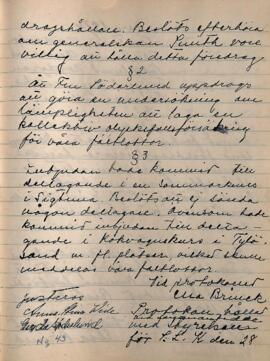 dragshållare. Beslöts efterhöra
om generalskan Knuth vore
villig att hålla detta föredrag
§ 2
Åt Fru Söderlund uppdrogs
att göra en undersökning om
lämpligheten att taga en
kollektiv olycksfallsförsäkring
för våra lottlottor.
§ 3
Inbjudan hade kommit till
deltagande i en sommarkurs
i Sigtuna. Beslöts att ej sända
någon deltagare. Även som hade
kommit inbjudan till delta-
gande i Kokvagnskurs i Tylö-
sand m. fl. platser, vilket skulle
meddelas våra lottor.
Vid protokollet
Elsa Brunck
Justeras
Anna Lisa
Söderlund
Protokoll hållet
med Styrelsen
för S. L. K den 28